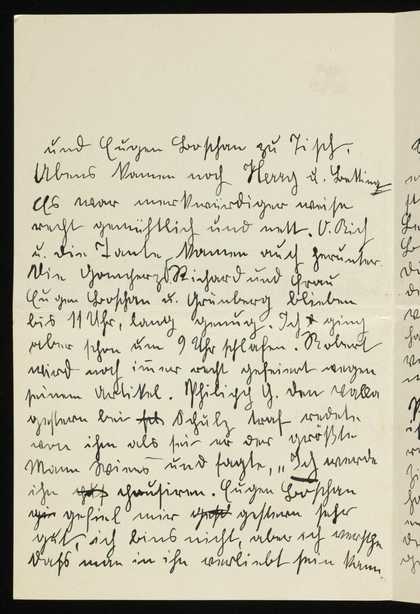 und Eugen Boschan zu Tisch.
Abens kamen noch Harry u. Betting
Es war merkwürdiger weise
recht gemühtlich und nett. O. Rich
u. die Tante kamen auch herunter.
Die Gomperz, Richard und Frau
Eugen Boschan u. Grünberg blieben
bis 11 Uhr, lang genug. Ich ging
aber schon um 9 Uhr schlafen. Robert
wird noch immer recht gefeinert wegen
seinem Artikel. Philipp G. den Valla
gestern bei Schulz traf redete
von ihm als sei er der größte
Mann Wiens und sagte, „Ich werde
ihn chausiren. Eugen Boschan
gefiel mir gestern sehr
gut, ich bins nicht, aber ich verstehe
dass man in ihn verliebt sein kann.